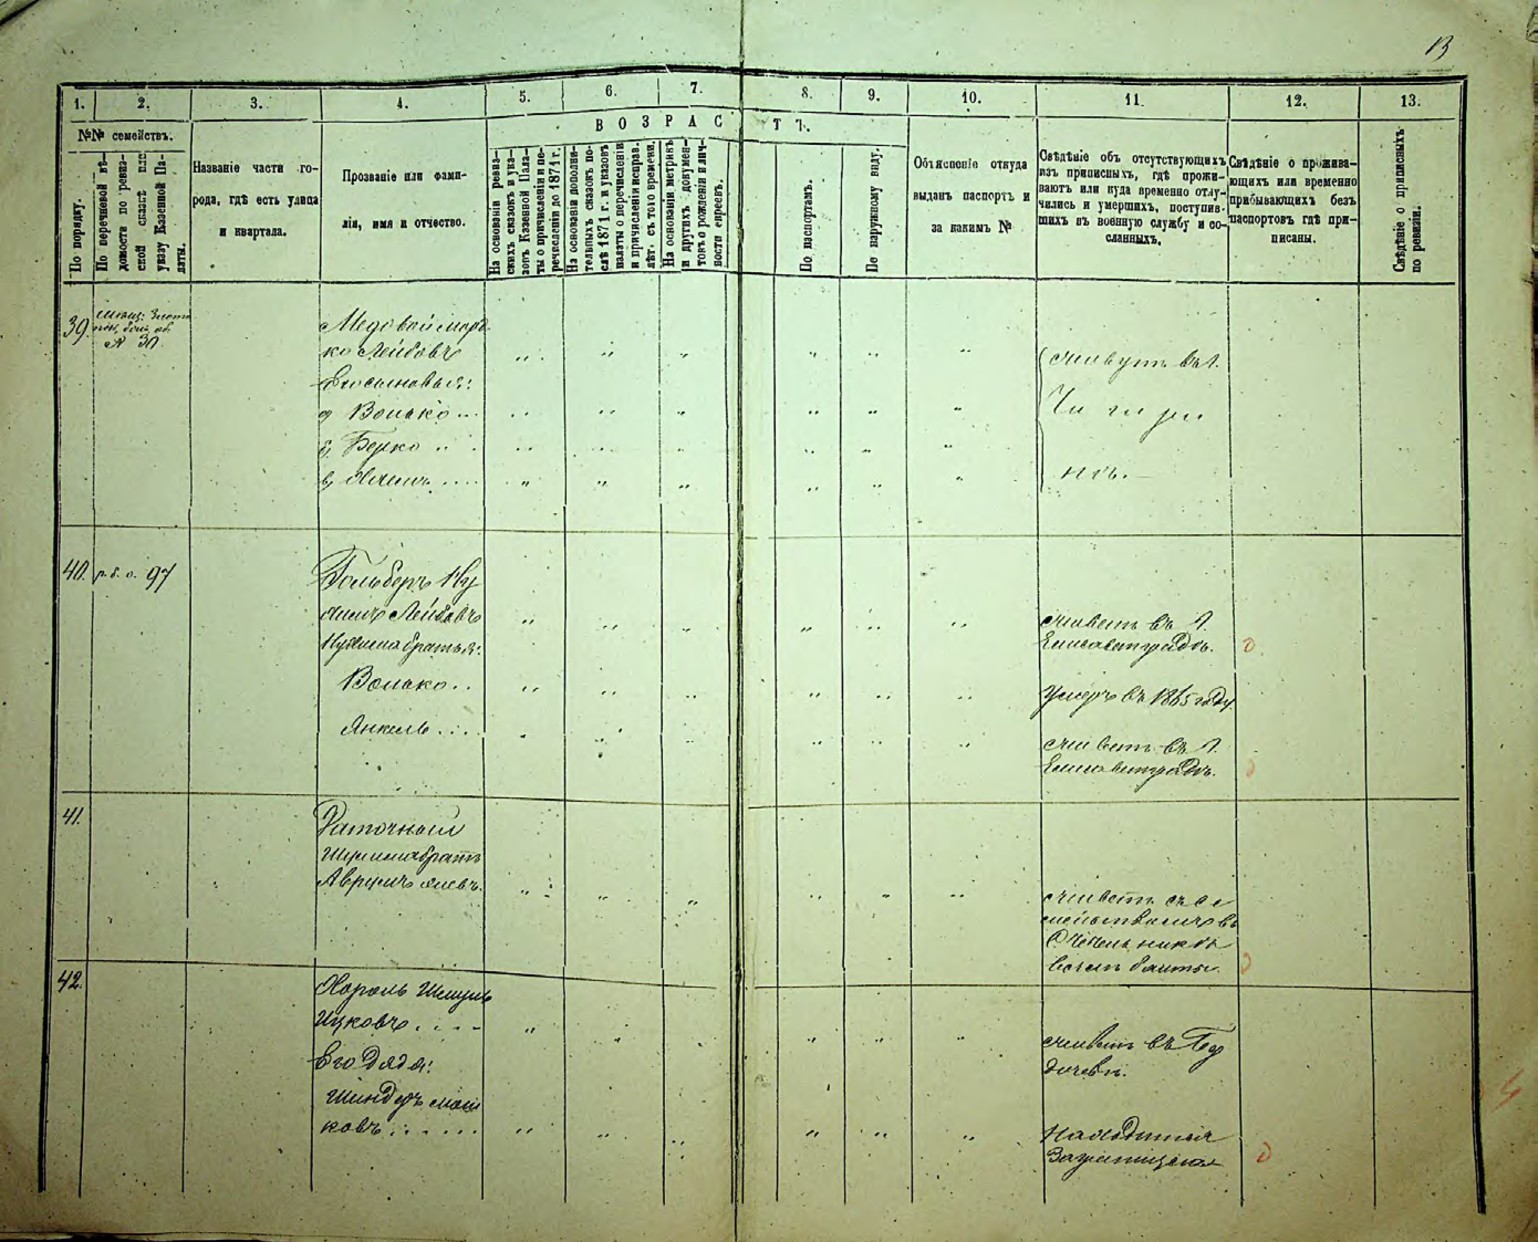 13
1. 2. 3. 4. 5. 6. 7. 8. 9. 10. 11. 12. 13.
№№ семействъ.
По порядку.
По перечневой вѣ-
домости по ревиз-
ской сказкѣ или
указу Казенной Па-
латы.
Названіе части го-
рода, гдѣ есть улица
и квартала.
Прозваніе или фами-
лія, имя и отчество.
ВОЗРАСТЪ.
На основаніи ревиз-
скихъ сказокъ и ука-
зовъ Казенной Пала-
ты о причисленіи и пе-
речисленіи до 1871 г.
На основаніи дополни-
тельныхъ сказокъ по-
слѣ 1871 г. и указовъ
палаты о перечисленіи
и причисленіи исправ.
лѣт. съ того времени.
На основаніи метрикъ
и другихъ докумен-
товъ о рожденіи и лич-
ности евреевъ.
По паспортамъ.
По наружному виду.
Объясненіе откуда
выданъ паспортъ и
за какимъ №
Свѣдѣніе объ отсутствующихъ
изъ приписныхъ, гдѣ прожи-
ваютъ или куда временно отлу-
чились и умершихъ, поступив-
шихъ въ военную службу и со-
сланныхъ.
Свѣдѣніе о прожива-
ющихъ или временно
прибывающихъ безъ
паспортовъ гдѣ при-
писаны.
Свѣдѣніе о приписныхъ
по ревизіи.
39.
№ 30
Медовой Морд
ко Лейбовъ
Его сыновья:
а, Волько
б, Берко
в, Хаимъ
живутъ въ г.
Чигири
нѣ.
40. р. б. о. 97
Гольберъ Ну
химъ Лейбовъ
Нухима братья:
Волько
Янкель
живетъ въ г.
Елисаветградѣ.
умеръ въ 1865 году
живетъ въ г.
Елисаветградѣ.
41.
Раточной
братъ
Аврумъ
живетъ съ се
мействомъ въ
42.
Король Шмуль
Ицковъ
Его дядя:
Шиндеръ Мош
ковъ
живетъ въ Бер
дичевѣ.
Находится
Заграницею